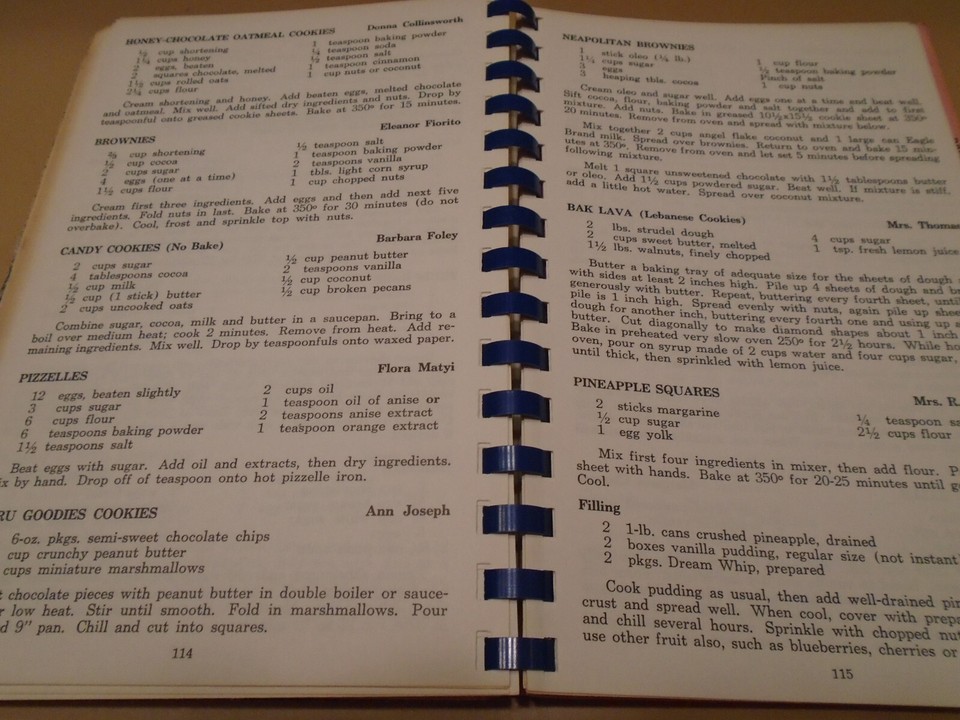 Donna Collinsworth
HONEY-CHOCOLATE OATMEAL COOKIES
½ cup shortening
1¼ cups honey
2 eggs, beaten
2 squares chocolate, melted
1½ cups rolled oats
2¼ cups flour
1 teaspoon baking powder
¼ teaspoon soda
½ teaspoon salt
1 teaspoon cinnamon
1 cup nuts or coconut
Cream shortening and honey. Add beaten eggs, melted chocolate
and oatmeal. Mix well. Add sifted dry ingredients and nuts. Drop by
teaspoonful onto greased cookie sheets. Bake at 350° for 15 minutes.
Eleanor Fiorito
BROWNIES
⅔ cup shortening
½ cup cocoa
2 cups sugar
4 eggs (one at a time)
1½ cups flour
½ teaspoon salt
1 teaspoon baking powder
2 teaspoons vanilla
1 tbls. light corn syrup
1 cup chopped nuts
Cream first three ingredients. Add eggs and then add next five
ingredients. Fold nuts in last. Bake at 350° for 30 minutes (do not
overbake). Cool, frost and sprinkle top with nuts.
Barbara Foley
CANDY COOKIES (No Bake)
2 cups sugar
4 tablespoons cocoa
½ cup milk
½ cup (1 stick) butter
2 cups uncooked oats
½ cup peanut butter
2 teaspoons vanilla
½ cup coconut
½ cup broken pecans
Combine sugar, cocoa, milk and butter in a saucepan. Bring to a
boil over medium heat; cook 2 minutes. Remove from heat. Add re-
maining ingredients. Mix well. Drop by teaspoonfuls onto waxed paper.
Flora Matyi
PIZZELLES
12 eggs, beaten slightly
3 cups sugar
6 cups flour
6 teaspoons baking powder
1½ teaspoons salt
2 cups oil
1 teaspoon oil of anise or
2 teaspoons anise extract
1 teaspoon orange extract
Beat eggs with sugar. Add oil and extracts, then dry ingredients.
ix by hand. Drop off of teaspoon onto hot pizzelle iron.
RU GOODIES COOKIES Ann Joseph
6-oz. pkgs. semi-sweet chocolate chips
cup crunchy peanut butter
cups miniature marshmallows
t chocolate pieces with peanut butter in double boiler or sauce-
r low heat. Stir until smooth. Fold in marshmallows. Pour
d 9" pan. Chill and cut into squares.
114
NEAPOLITAN BROWNIES
1 stick oleo (¼ lb.)
1¼ cups sugar
3 eggs
3 heaping tbls. cocoa
1 cup flour
½ teaspoon baking powder
Pinch of salt
1 cup nuts
Cream oleo and sugar well. Add eggs one at a time and beat well.
Sift cocoa, flour, baking powder and salt together and add to first
mixture. Add nuts. Bake in greased 10½x15½ cookie sheet at 350°
20 minutes. Remove from oven and spread with mixture below.
Mix together 2 cups angel flake coconut and 1 large can Eagle
Brand milk. Spread over brownies. Return to oven and bake 15 min-
utes at 350°. Remove from oven and let set 5 minutes before spreading
following mixture.
Melt 1 square unsweetened chocolate with 1½ tablespoons butter
or oleo. Add 1½ cups powdered sugar. Beat well. If mixture is stiff,
add a little hot water. Spread over coconut mixture.
BAK LAVA (Lebanese Cookies)
Mrs. Thomas
2 lbs. strudel dough
2 cups sweet butter, melted
1½ lbs. walnuts, finely chopped
4 cups sugar
1 tsp. fresh lemon juice
Butter a baking tray of adequate size for the sheets of dough
with sides at least 2 inches high. Pile up 4 sheets of dough and br
generously with butter. Repeat, buttering every fourth sheet, until
pile is 1 inch high. Spread evenly with nuts, again pile up shee
dough for another inch, buttering every fourth one and using up a
butter. Cut diagonally to make diamond shapes about 1 inch
Bake in preheated very slow oven 250° for 2½ hours. While ho
oven, pour on syrup made of 2 cups water and four cups sugar,
until thick, then sprinkled with lemon juice.
PINEAPPLE SQUARES
Mrs. R.
2 sticks margarine
½ cup sugar
1 egg yolk
¼ teaspoon sa
2½ cups flour
Mix first four ingredients in mixer, then add flour. P
sheet with hands. Bake at 350° for 20-25 minutes until g
Cool.
Filling
2 1-lb. cans crushed pineapple, drained
2 boxes vanilla pudding, regular size (not instant
2 pkgs. Dream Whip, prepared
Cook pudding as usual, then add well-drained pin
crust and spread well. When cool, cover with prep
and chill several hours. Sprinkle with chopped nut
use other fruit also, such as blueberries, cherries or
115